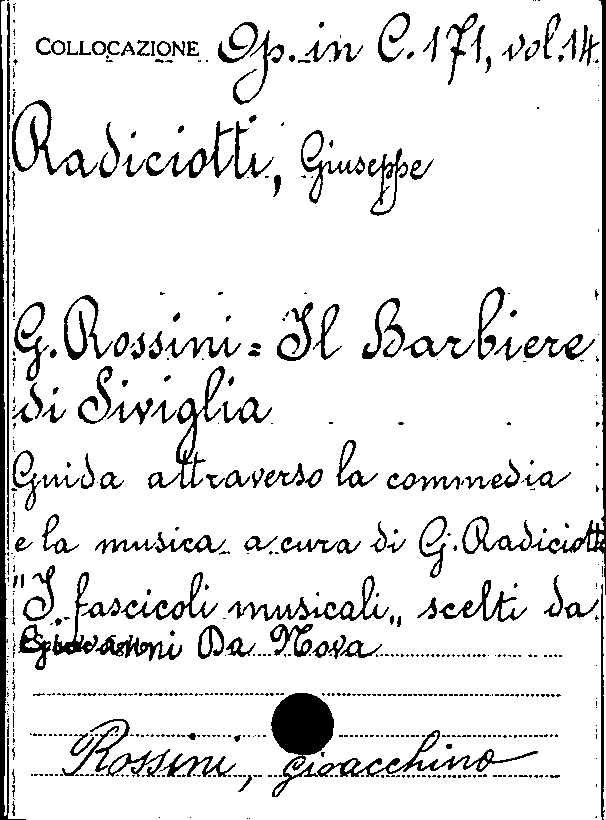 COLLOCAZIONE Op. in C. 171, vol. 14
Radiciotti, Giuseppe
G. Rossini = Il Barbiere
di Siviglia
Guida attraverso la commedia
e la musica a cura di G. Radiciotti
"I fascicoli musicali„ scelti da
Giovanni Da Nova
Rossini, gioacchino